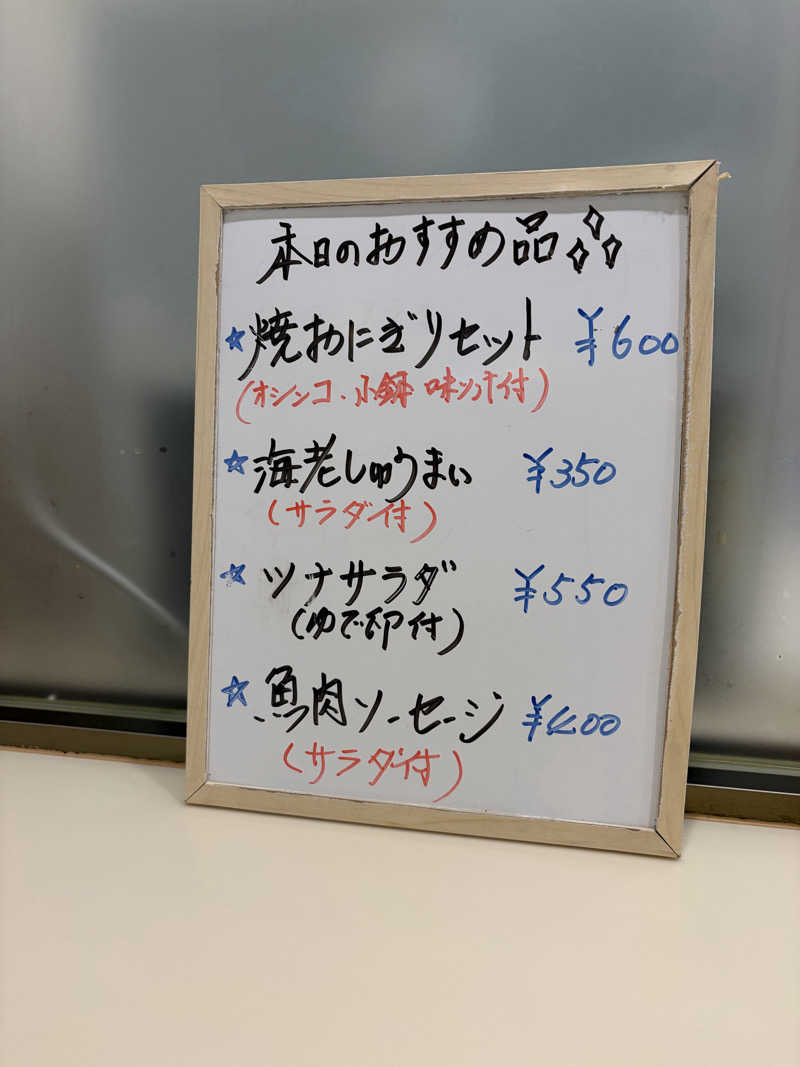 本日のおすすめ品
☆焼おにぎりセット ¥600
(オシンコ・小鉢 味ソ汁付)
☆海老しゅうまい ¥350
(サラダ付)
☆ツナサラダ ¥550
(ゆで卵付)
☆魚肉ソーセージ ¥400
(サラダ付)